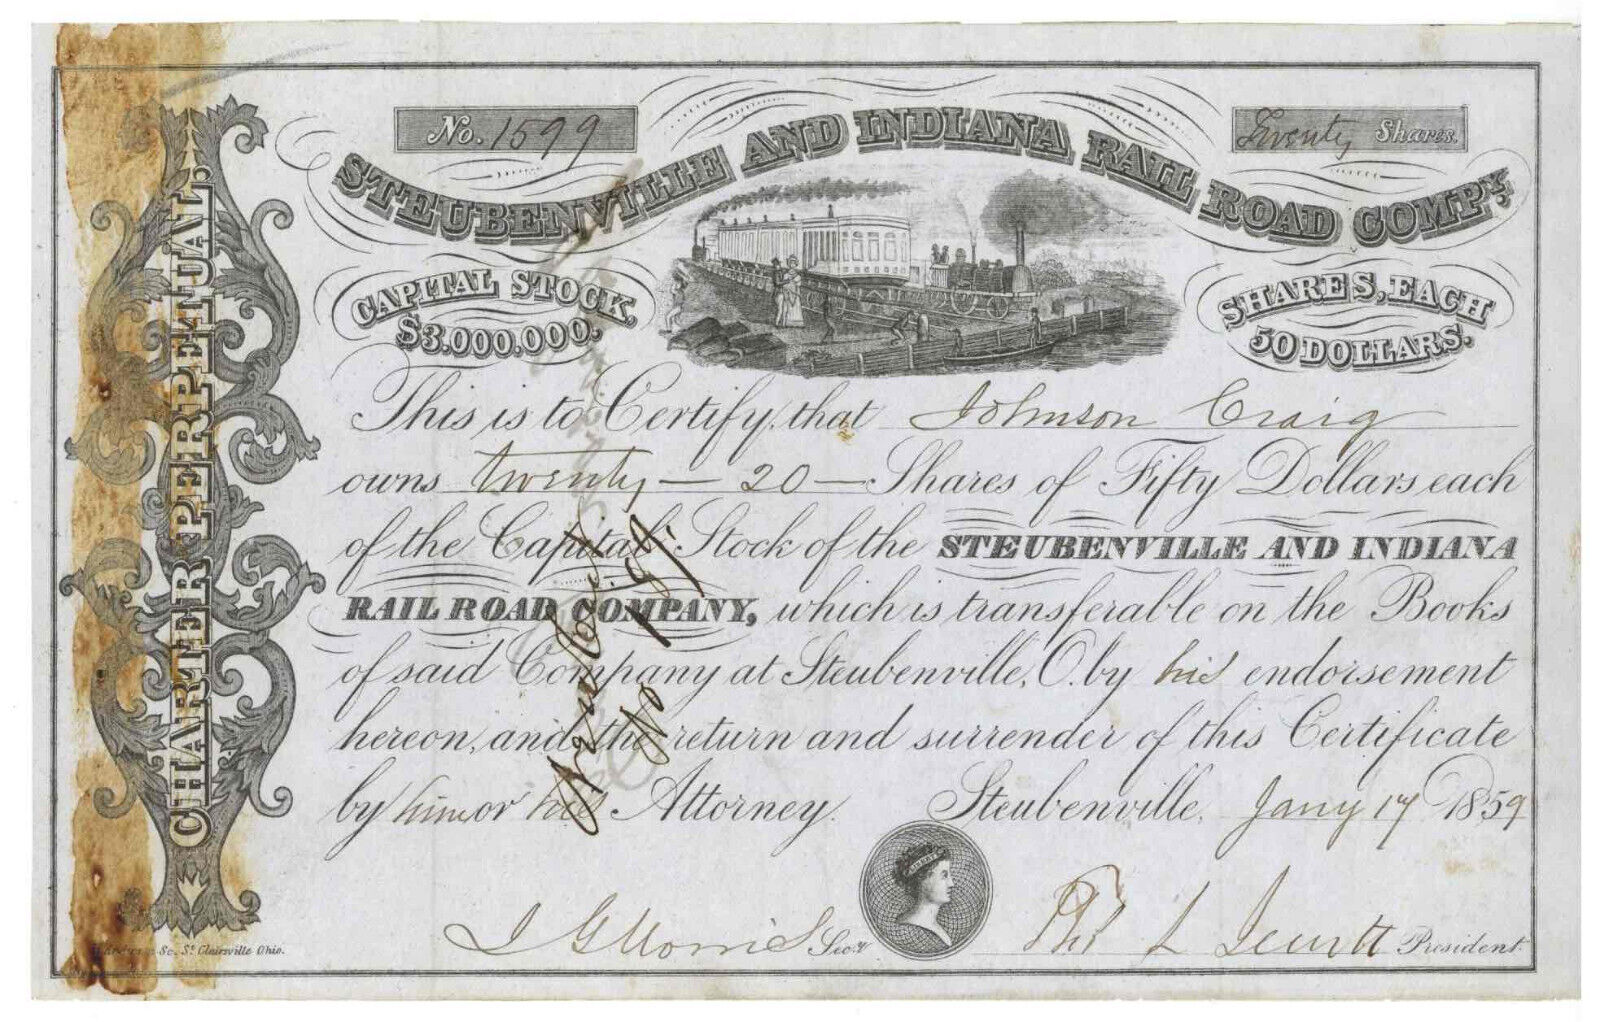 No. 1599
Twenty Shares.
STEUBENVILLE AND INDIANA RAIL ROAD COMPY,
CAPITAL STOCK, $3.000.000.
SHARES, EACH 50 DOLLARS.
CHARTER PERPETUAL.
This is to Certify, that Johnson Craig
owns twenty — 20 — Shares of Fifty Dollars each
of the Capital Stock of the STEUBENVILLE AND INDIANA
RAIL ROAD COMPANY, which is transferable on the Books
of said Company at Steubenville, O. by his endorsement
hereon, and the return and surrender of this Certificate
by him or his Attorney. Steubenville, Jany 17 1859
J G Morris Secy
L Jewett President.
Sc. St. Clairsville Ohio.